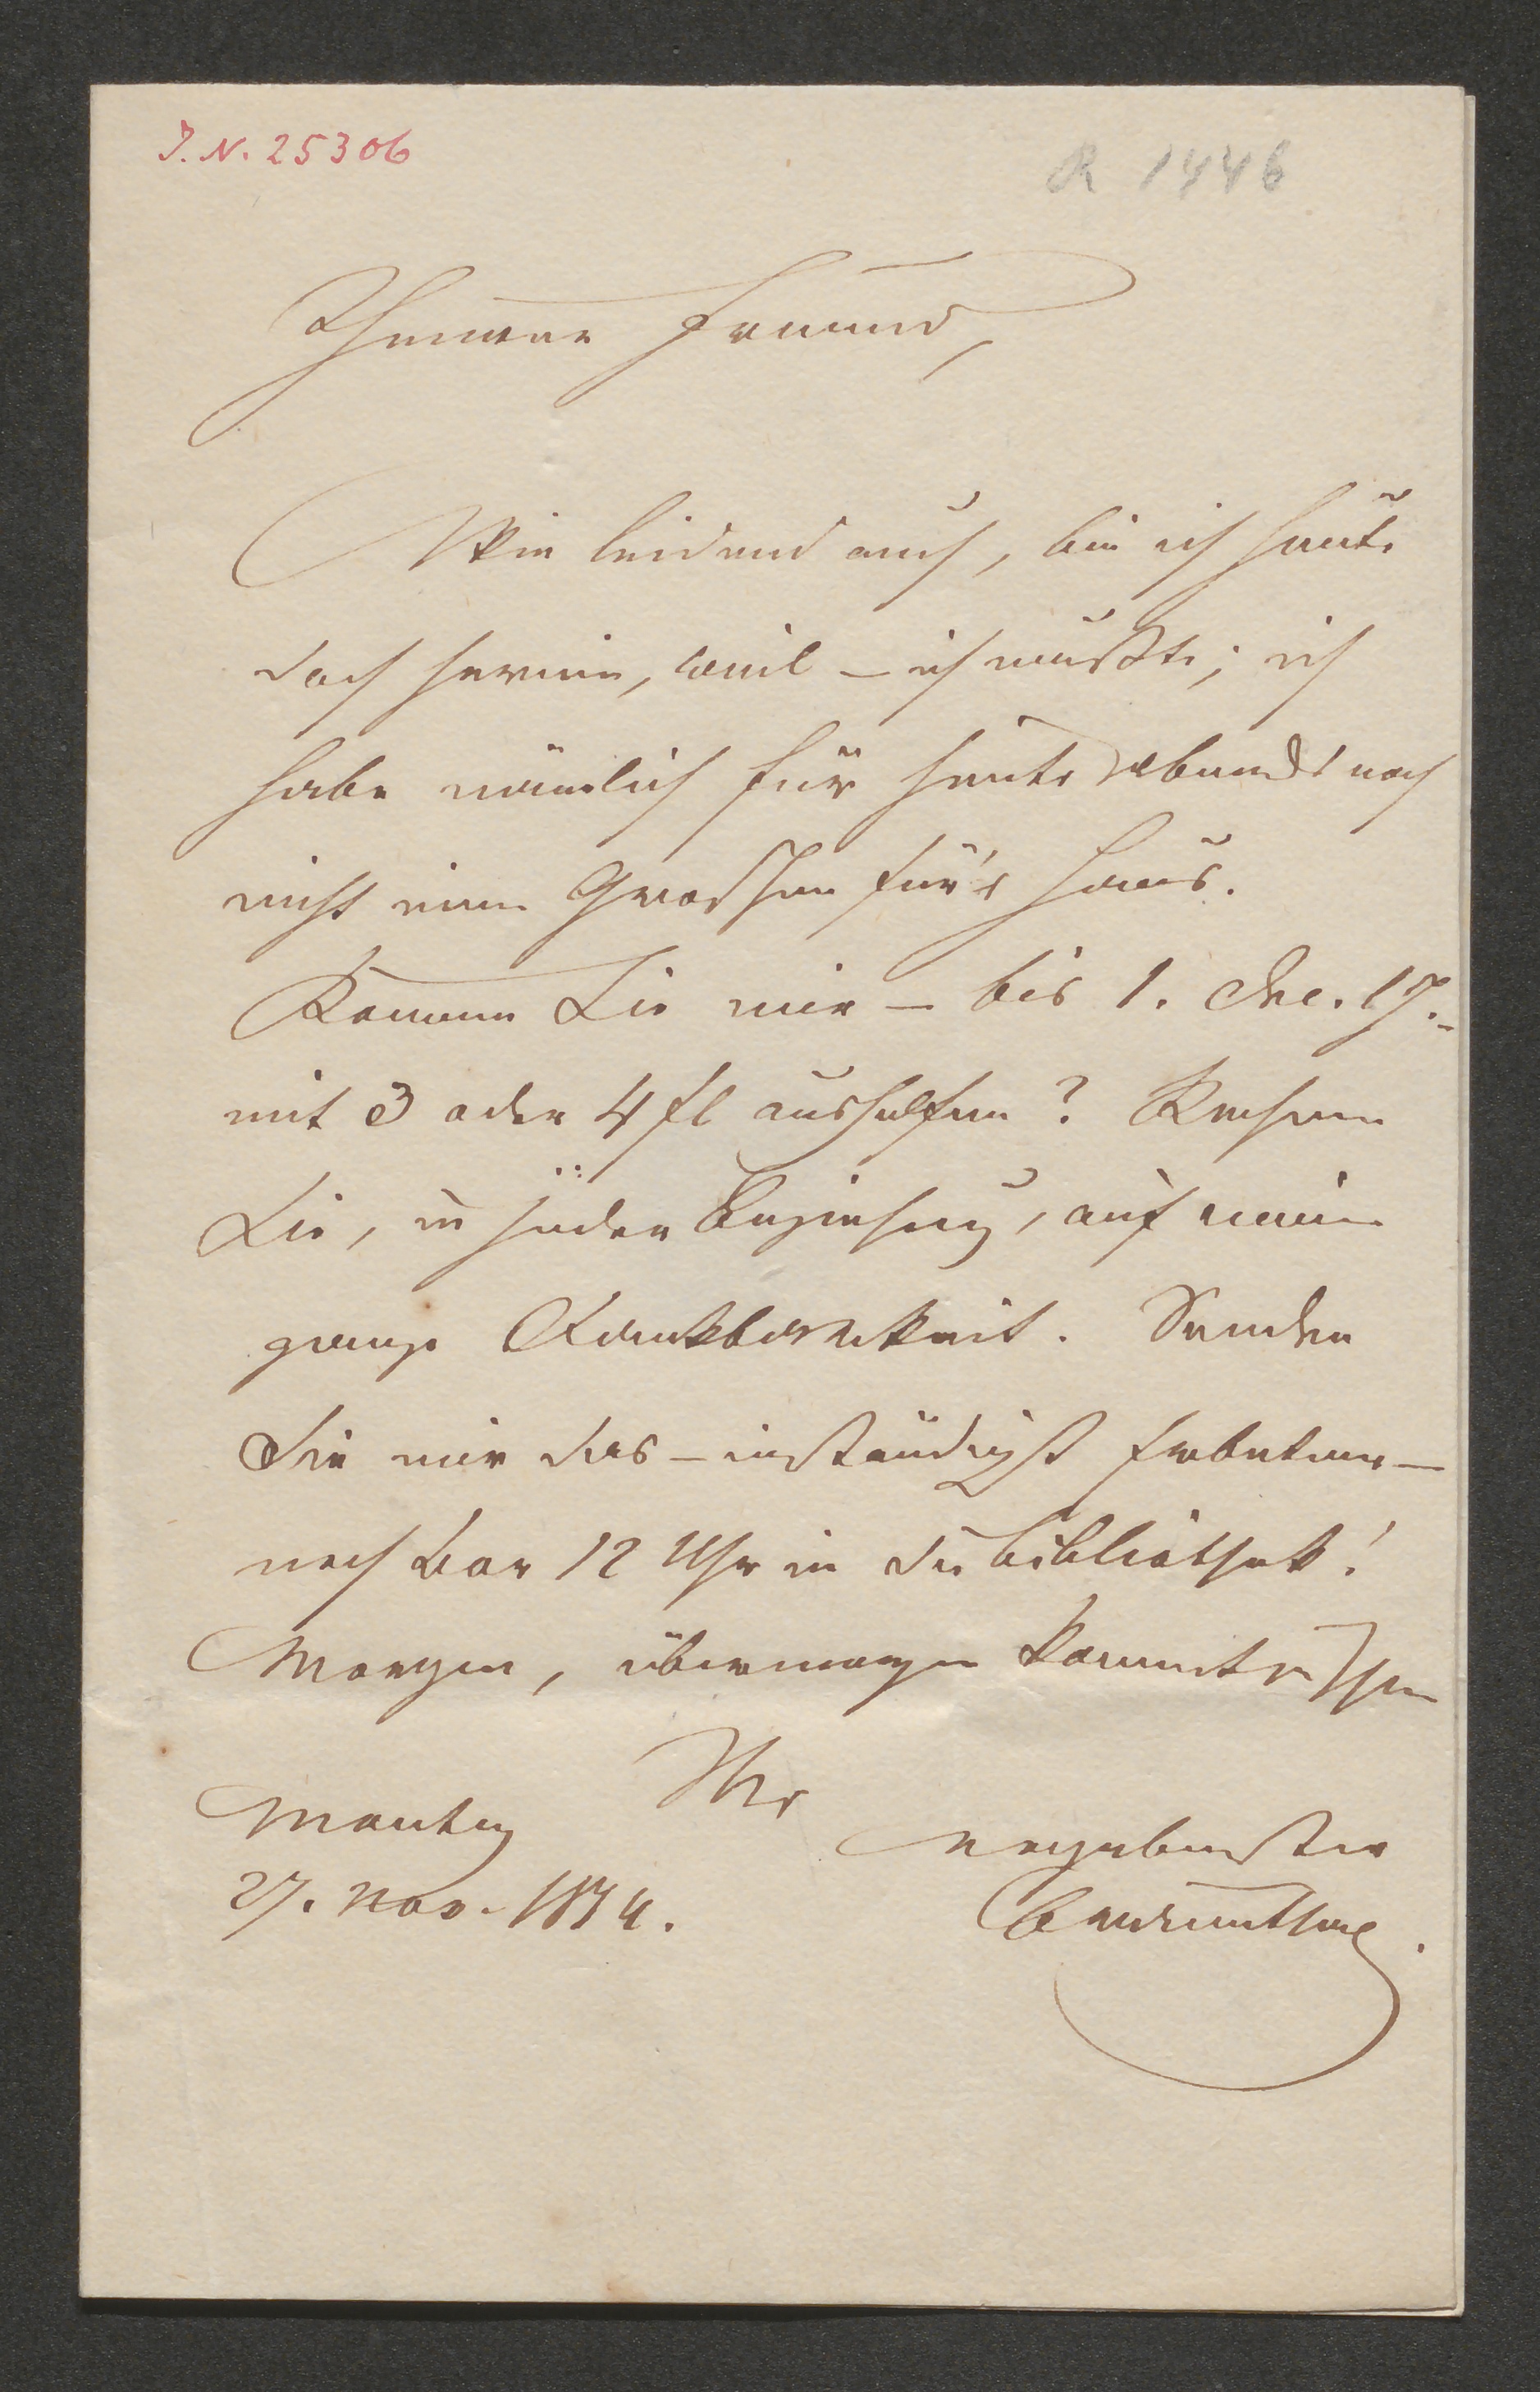 J. N. 25306
R 1446
Theurer Freund,
Wie leidend auch, bin ich heute
doch herein, weil – ich mußte; ich
habe nämlich für heute Abends noch
nicht einen Groschen für's Haus.
Können Sie mir – bis 1. Dec.
mit 3 oder 4 fl aushelfen? Rechnen
Sie, in jeder Beziehung, auf meine
ganze Dankbarkeit. Senden
Sie mir das – inständigst Erbetene –
noch vor 12 Uhr in die Bibliothek!
Morgen, übermorgen
Ihr
Montag
ergebenster
27. Nov.